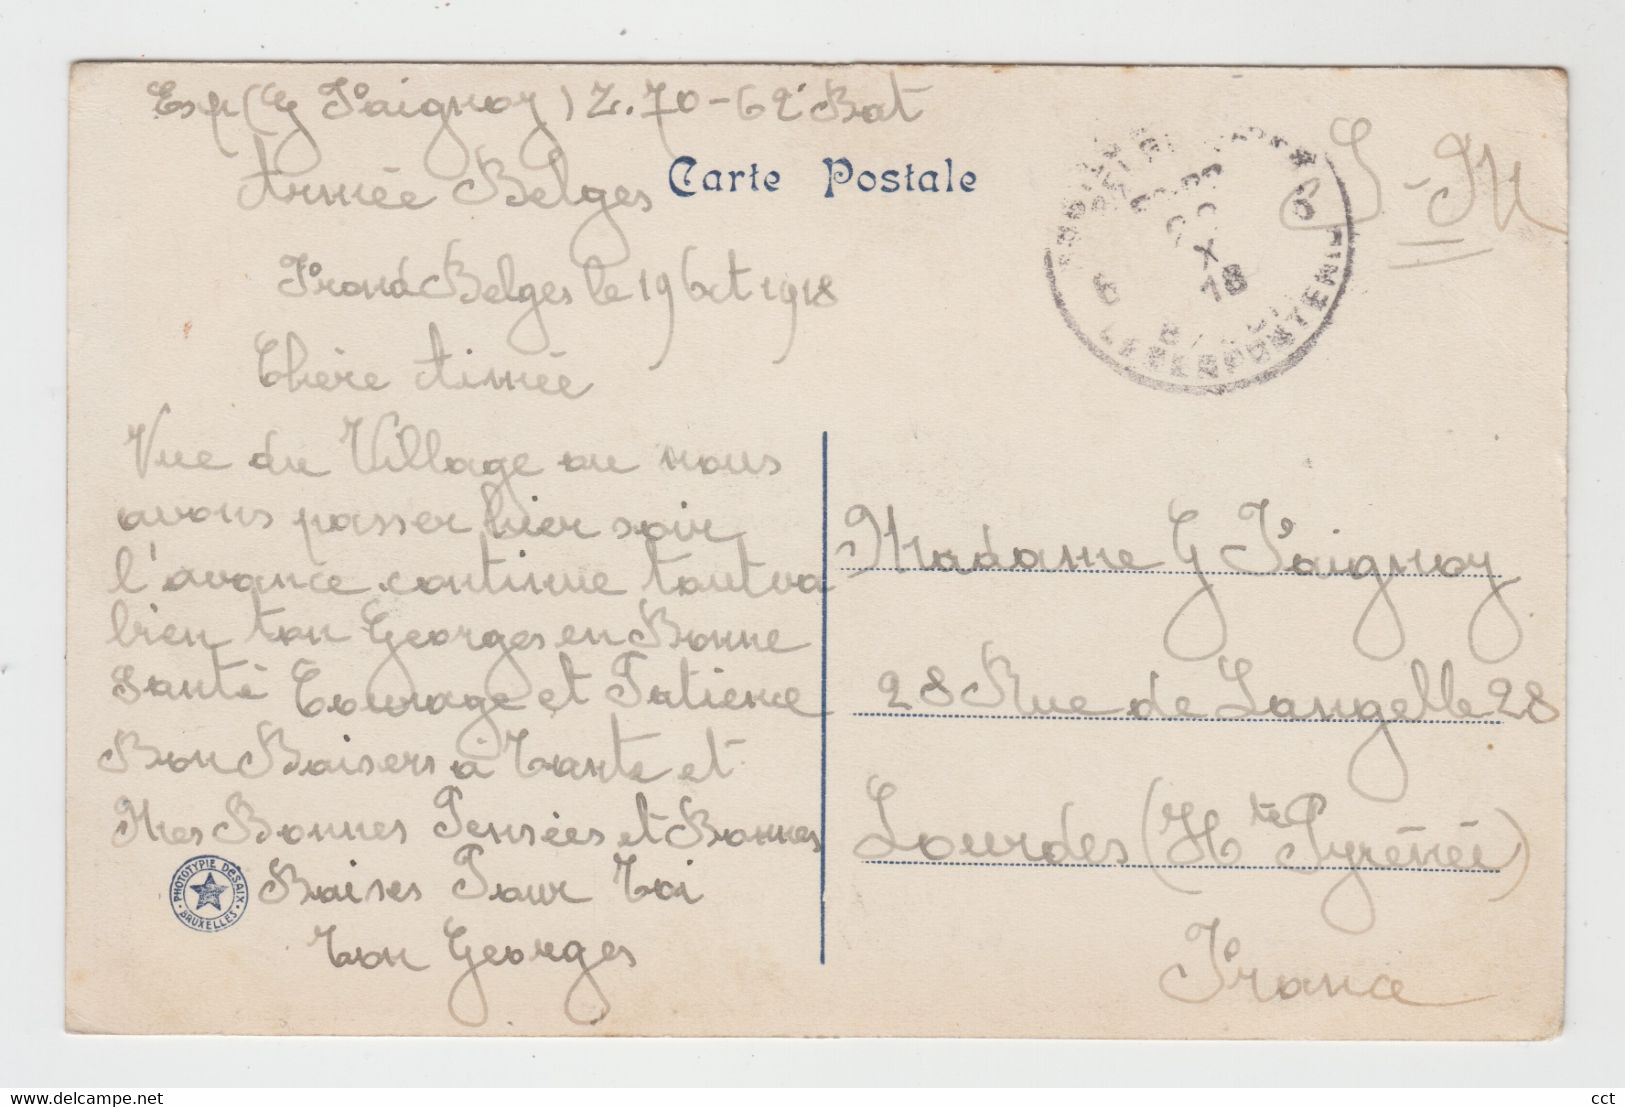 Exp (G Paignoy) Z.70-62e Bat
Armée Belges
Carte Postale
S-M
Frond Belges le 19 Oct 1918
Chère Aimée
Vue du Village ou nous
avons passer hier soir
l'avance continue tout va
bien ton Georges en Bonne
Santé Courage et Patience
Bon Baisers à Tante et
Mes Bonnes Pensées et Bonnes
Baises Pour Toi
ton Georges
X
18
LEGERPOSTERIJ
Madame G Paignoy
28 Rue de Langelle 28
Lourdes (Hte Pyrénéé)
France
PHOTOTYPIE DÉSAIX
BRUXELLES
cct